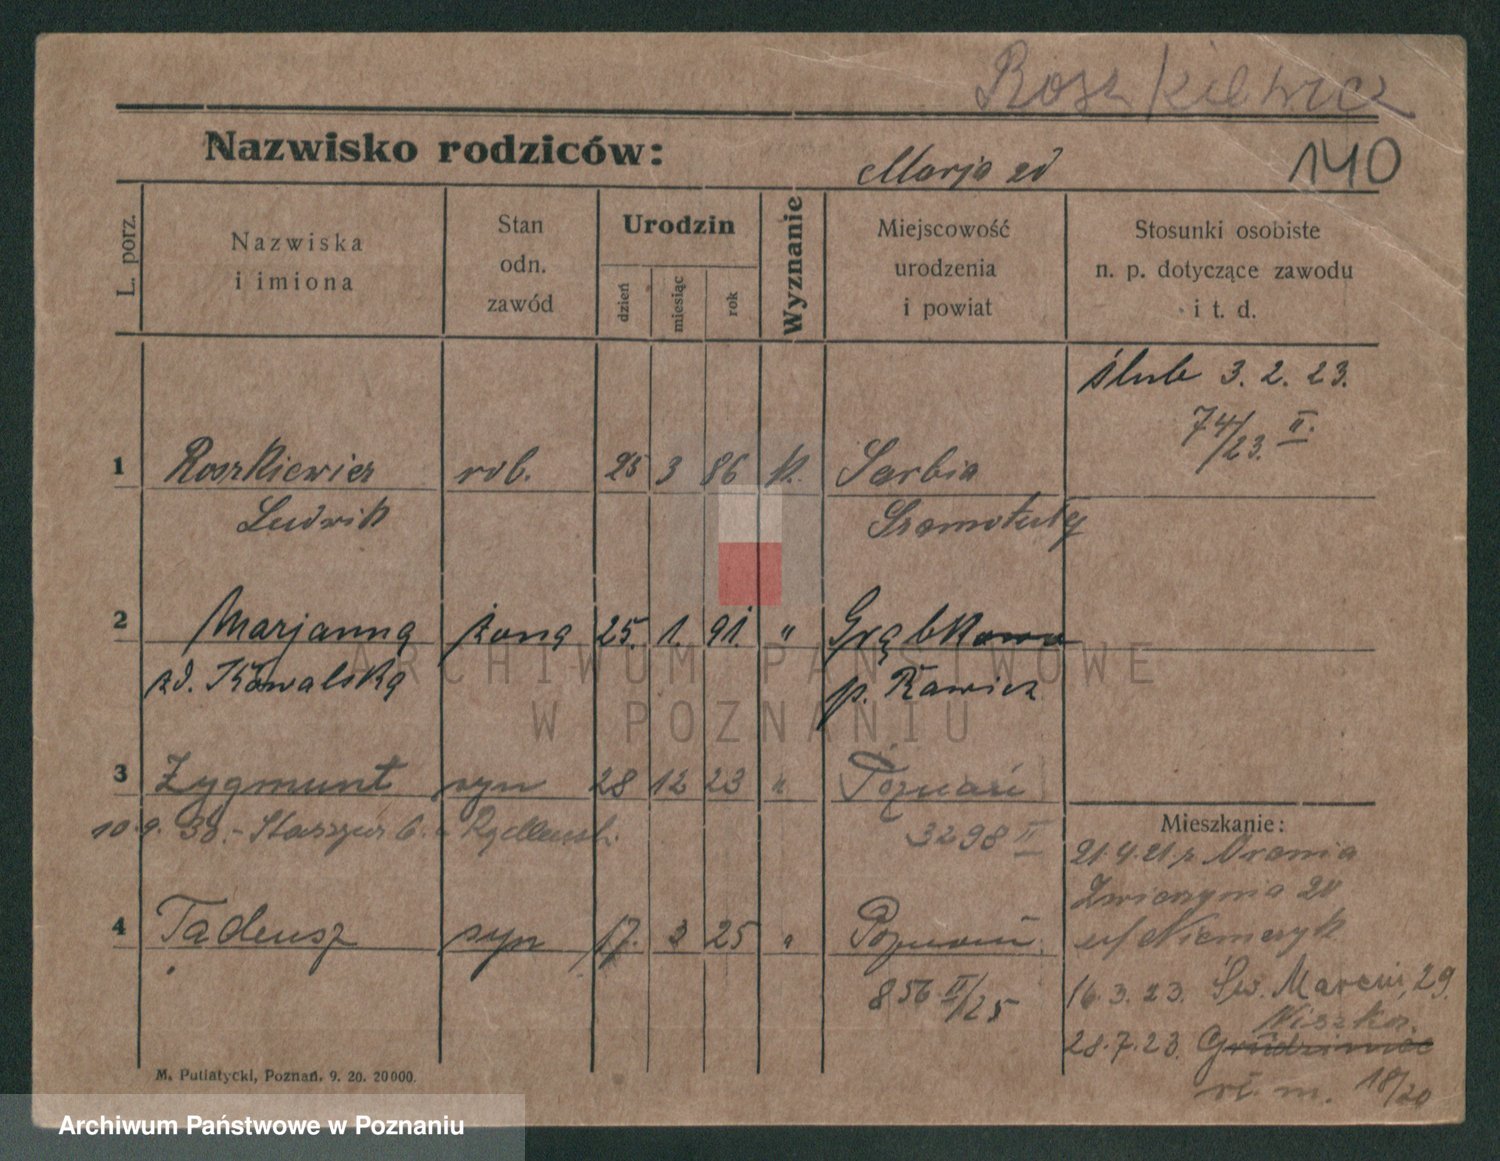 Roszkiewicz
Nazwisko rodziców:
Marja zd
140
L. porz.
Nazwiska
i imiona
Stan
odn.
zawód
Urodzin
dzień
miesiąc
rok
Wyznanie
Miejscowość
urodzenia
i powiat
Stosunki osobiste
n. p. dotyczące zawodu
i t. d.
ślub 3. 2. 23.
74/23. II.
1 Roszkiewicz rob. 25 3 86 k. Sarbia
Ludwik Szamotuły
2 Marjanna żona 25. 1. 91. " Grąbkowo
zd. Kowalska p. Rawicz
3 Zygmunt syn 28 12 23 " Poznań
10.9.38.- Staszica 6. 3298 II
Mieszkanie:
21.4.21 z
Zwierzynia 20
4 Tadeusz syn 17. 3 25 " Poznań
u/Niemczyk
856 II/25
16.3.23. Św. Marcin, 29.
28.7.23.
18/20
M. Putiatycki, Poznań. 9. 20. 20000.
ARCHIWUM PAŃSTWOWE
W POZNANIU
Archiwum Państwowe w Poznaniu